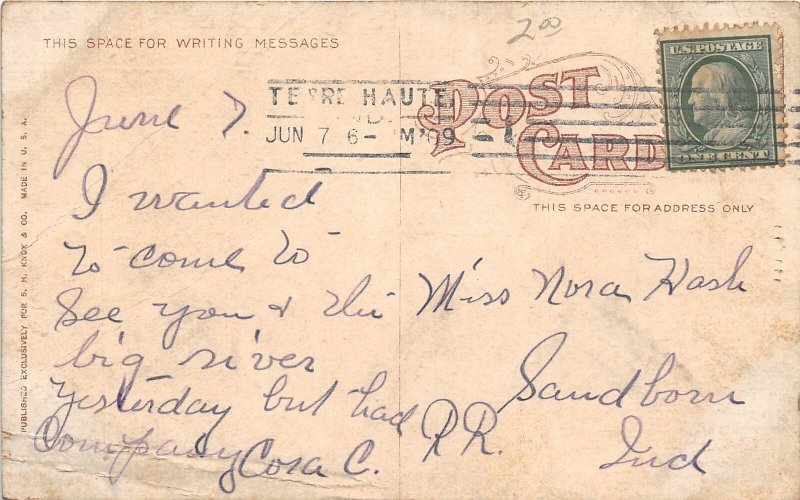 THIS SPACE FOR WRITING MESSAGES
2 00
U.S. POSTAGE
ONE CENT
POST
CARD
TERRE HAUTE
IND.
JUN 7 6- M '09
1
THIS SPACE FOR ADDRESS ONLY
PUBLISHED EXCLUSIVELY FOR S. H. KNOX & CO. MADE IN U. S. A.
June 7.
I wanted
to come to
see you & the
big river
yesterday but had
Company Cora C.
Miss Nora Hash
Sandborn
R R. Ind